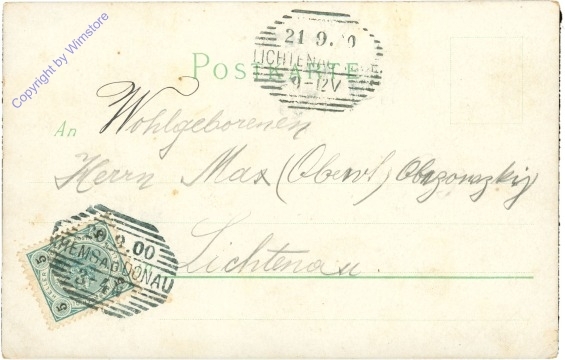 Copyright by Wimstore
21.9.00
LICHTENAU
9-12V
POSTKARTE
An Wohlgeborenen
Herrn Max (Oberl)
Lichtenau.
9.00
KREMS A.D. DONAU
5
5